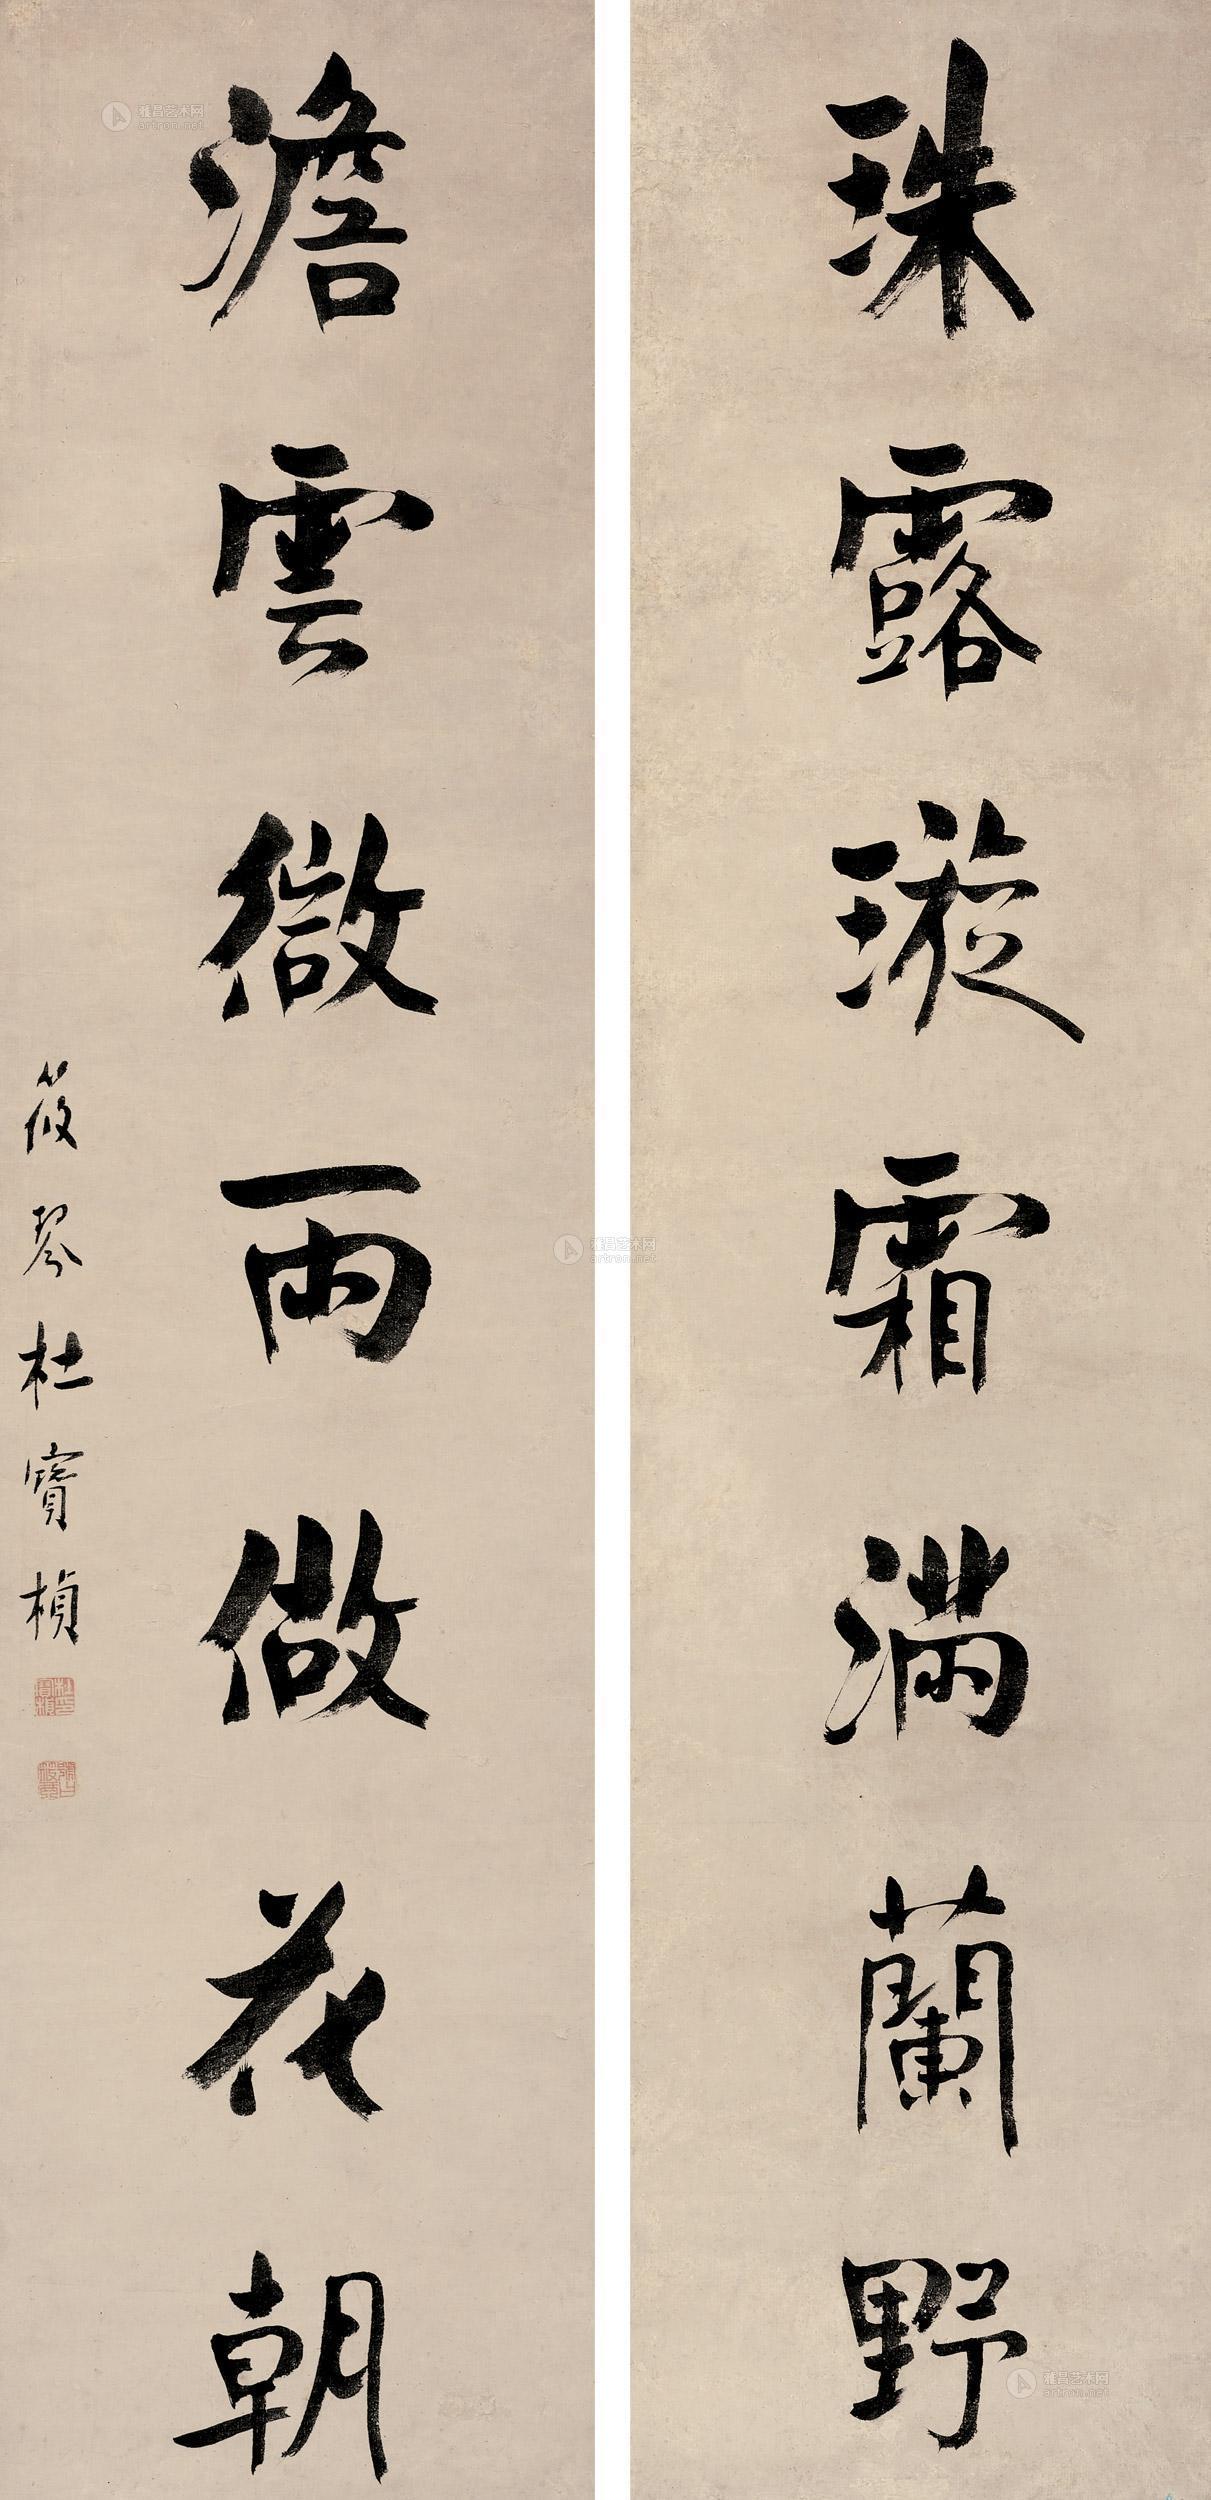 珠露璇霜滿蘭野
澹雲微雨做花朝
筱琴杜寶楨
雅昌艺术网
artron.net
雅昌艺术网
artron.net
雅昌艺术网
artron.net